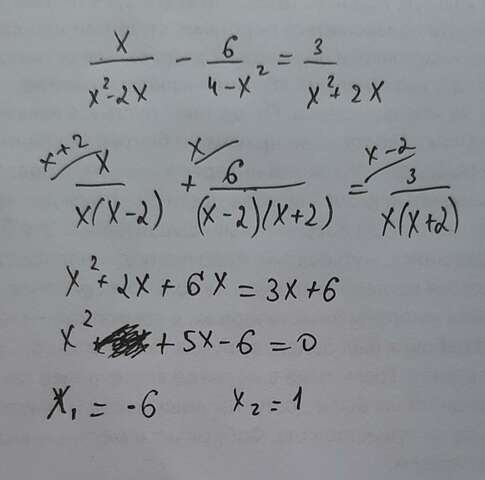 x/(x²-2x) - 6/(4-x²) = 3/(x²+2x)
x+2/ x/(x(x-2)) + x/ 6/((x-2)(x+2)) = x-2/ 3/(x(x+2))
x²+2x+6x=3x+6
x²+5x-6=0
x₁=-6 x₂=1